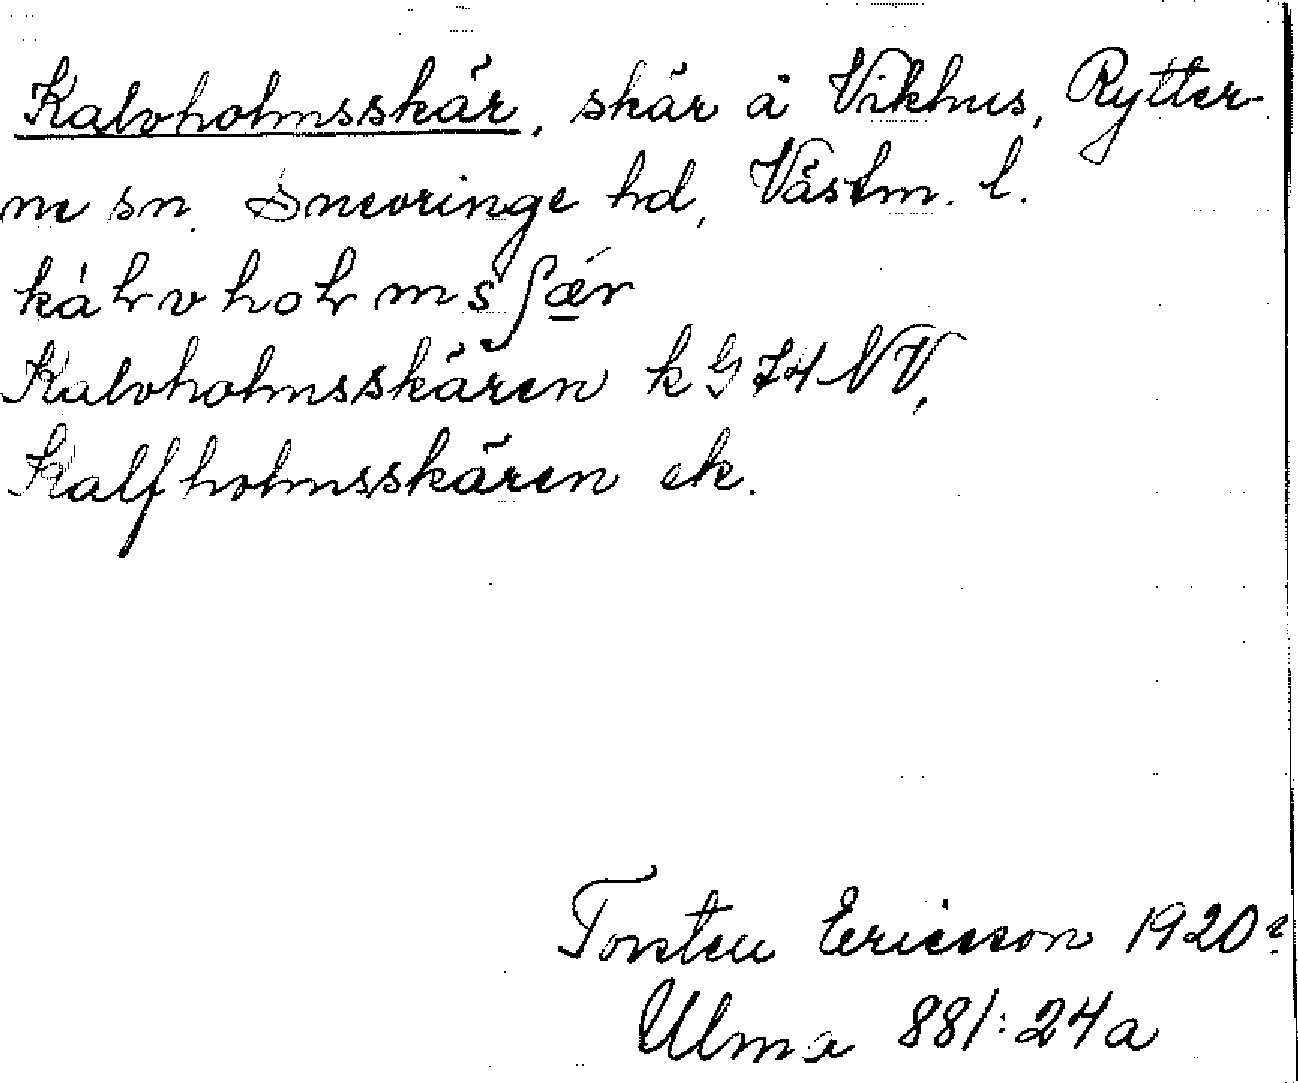 Kalvholmsskär, skär å Vikhus, Rytter-
ne sn. Snevringe hd, Västm. l.
kàɫvhoɫmsʃǽr
Kalvholmsskären k G 74 NV,
Kalfholmsskären ek.
Torsten Ericsson 1920?
Ulma 881:24a